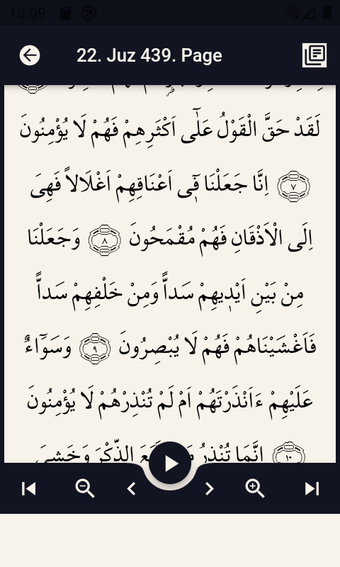 10:09
22. Juz 439. Page
لَقَدْ حَقَّ الْقَوْلُ عَلٰٓى اَكْثَرِهِمْ فَهُمْ لَا يُؤْمِنُونَ
﴿٧﴾ اِنَّا جَعَلْنَا ف۪ٓى اَعْنَاقِهِمْ اَغْلَالاً فَهِىَ
اِلَى الْاَذْقَانِ فَهُمْ مُقْمَحُونَ ﴿٨﴾ وَجَعَلْنَا
مِنْ بَيْنِ اَيْد۪يهِمْ سَداًّ وَمِنْ خَلْفِهِمْ سَداًّ
فَاَغْشَيْنَاهُمْ فَهُمْ لَا يُبْصِرُونَ ﴿٩﴾ وَسَوَٓاءٌ
عَلَيْهِمْ ءَاَنْذَرْتَهُمْ اَمْ لَمْ تُنْذِرْهُمْ لَا يُؤْمِنُونَ
﴿١٠﴾ اِنَّمَا تُنْذِرُ الذِّكْرَ وَخَشِىَ